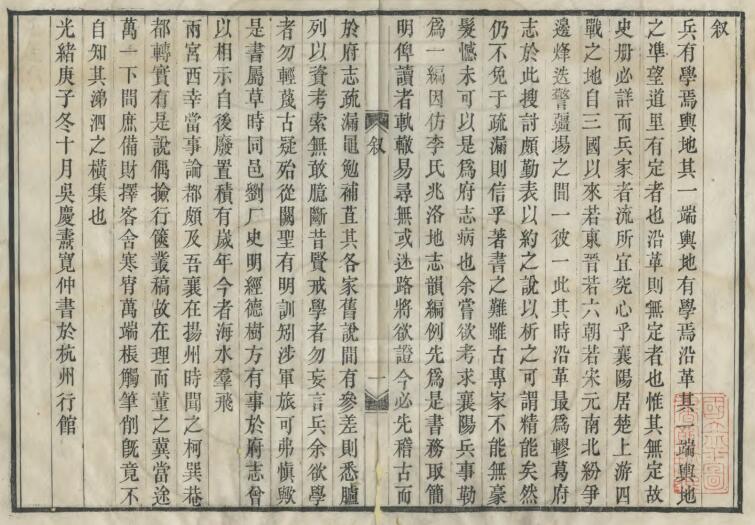 叙
兵有學焉輿地其一端輿地有學焉沿革其一端輿地
之凖望道里有定者也沿革則無定者也惟其無定故
史册必詳而兵家者流所宜究心乎襄陽居楚上游四
戰之地自三國以來若東晉若六朝若宋元南北紛爭
邊烽迭警疆埸之間一彼一此其時沿革最爲轇葛府
志於此搜討頗勤表以約之說以析之可謂精能矣然
仍不免于疏漏則信乎著書之難雖古專家不能無豪
髮憾未可以是爲府志病也余嘗欲考求襄陽兵事勒
爲一編因仿李氏兆洛地志韻編例先爲是書務取簡
明俾讀者軌轍易尋無或迷路將欲證今必先稽古而
叙
一
於府志疏漏黽勉補苴其各家舊說間有參差則悉臚
列以資考索無敢臆斷昔賢戒學者勿妄言兵余欲學
者勿輕蔑古疑殆從闕聖有明訓矧涉軍旅可弗愼歟
是書屬草時同邑劉厂史明經德樹方有事於府志曾
以相示自後廢置積有歲年今者海水羣飛
兩宮西幸當事論都頗及吾襄在揚州時聞之柯巽菴
都轉實有是說偶撿行篋叢稿故在理而董之冀當途
萬一下問庶備財擇客舍寒宵萬端棖觸筆削旣竟不
自知其涕泗之橫集也
光緒庚子冬十月吳慶燾寬仲書於杭州行館